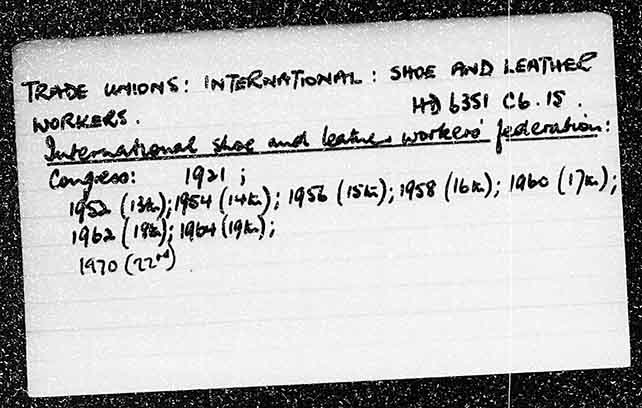 TRADE UNIONS: INTERNATIONAL: SHOE AND LEATHER
WORKERS.
HD 6351 C6.15.
International shoe and leather workers' federation:
Congress: 1921;
1952 (13th); 1954 (14th); 1956 (15th); 1958 (16th); 1960 (17th);
1962 (18th); 1964 (19th);
1970 (22nd)